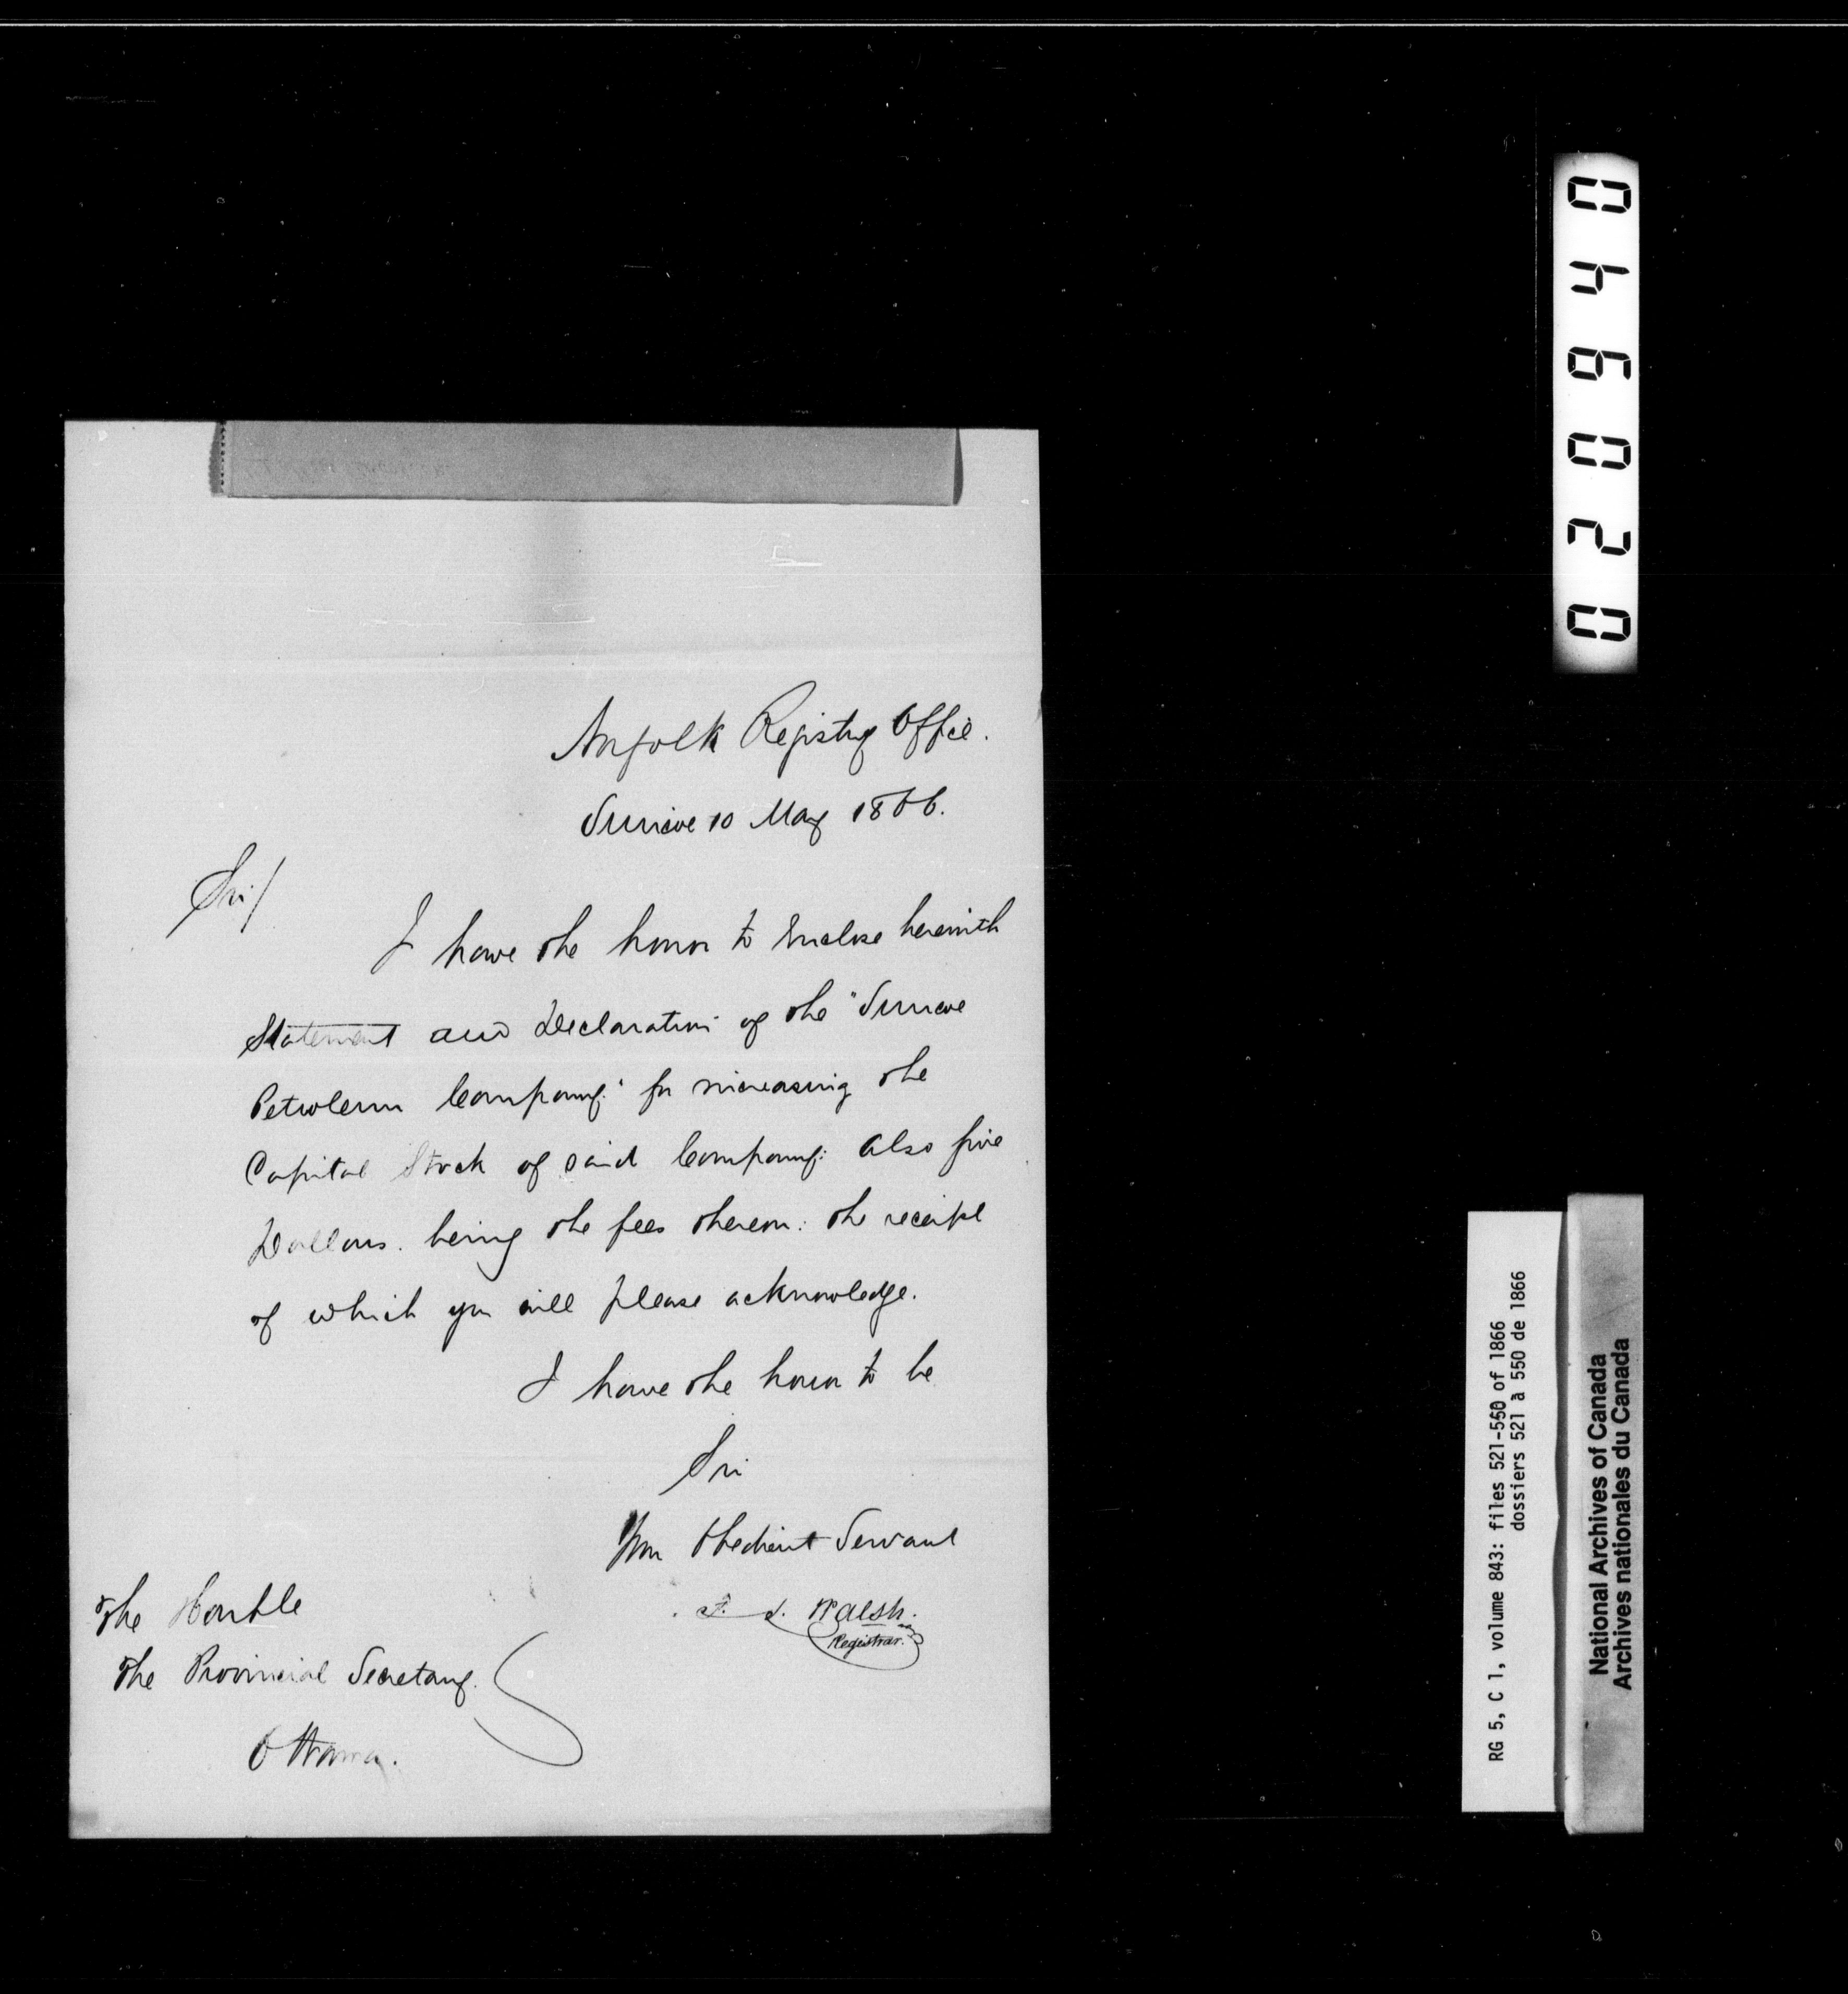 Norfolk Registry Office.
Simcoe 10 May 1866.
Sir/
I have the honor to Enclose herewith
Statement and Declaration of the "Simcoe
Petroleum Company" for increasing the
Capital Stock of said Company: also five
Dollars. being the fees thereon: the receipt
of which you will please acknowledge.
I have the honor to be
Sir
Your Obedient Servant
F. L. Walsh.
Registrar.
The Honble
The Provincial Secretary.
Ottawa.
046020
RG 5, C 1, volume 843: files 521-550 of 1866
dossiers 521 à 550 de 1866
National Archives of Canada
Archives nationales du Canada